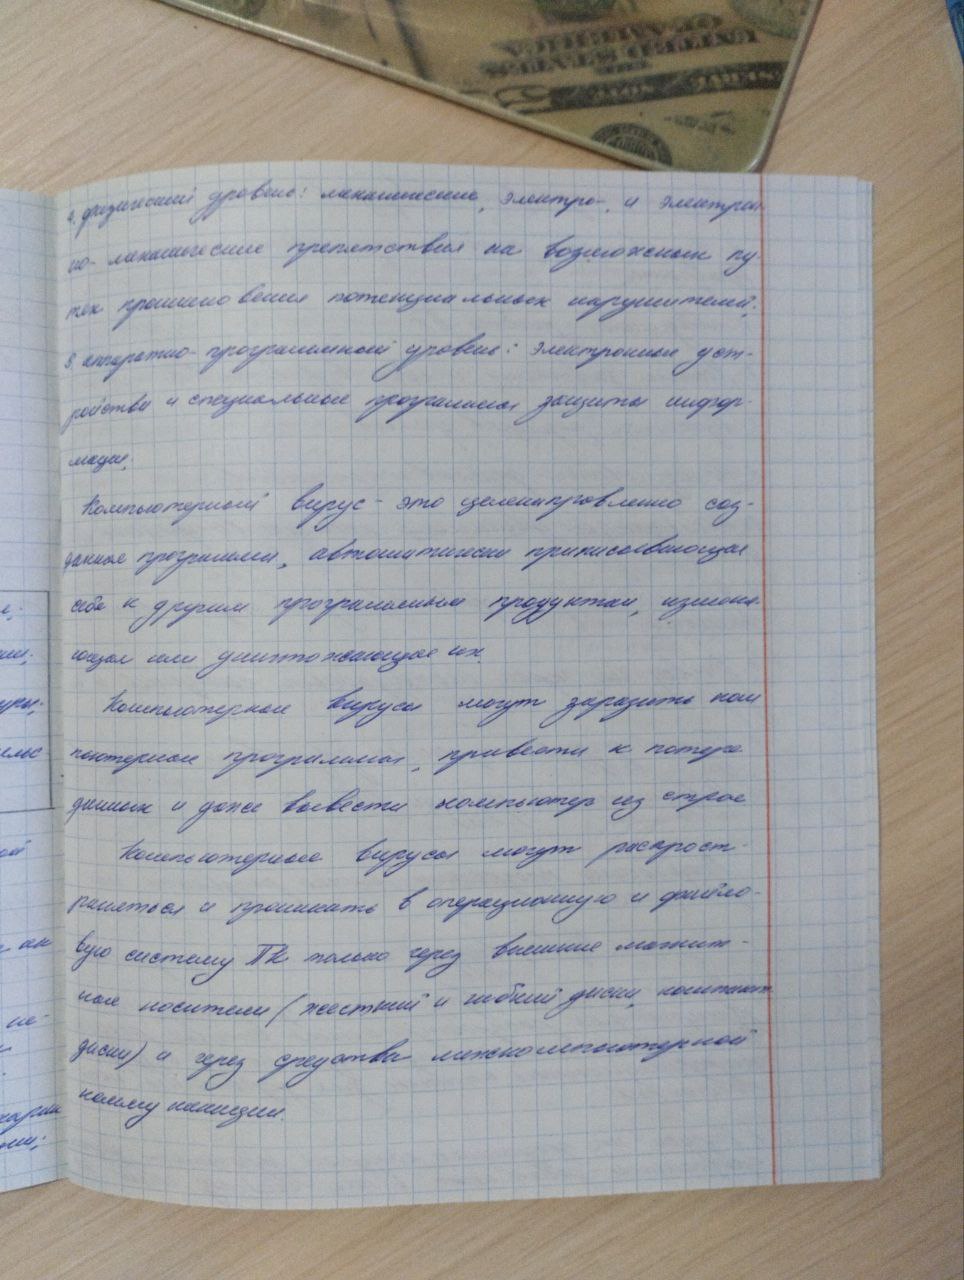 UNITED STATES
OF AMERICA
4. физический уровень: механические, электро-, и электрон
но-механические препятствия на возможных пу-
тях проникновения потенциальных нарушителей;
5. аппаратно-программный уровень: электронные уст-
ройства и специальные программы защиты инфор-
мации.
Компьютерный вирус - это целенаправленно соз-
данная программа, автоматически приписывающая
себя к другим программным продуктам, изменя-
ющая или уничтожающая их.
Компьютерные вирусы могут заразить ком
пьютерные программы, привести к потере
данных и даже вывести компьютер из строя
Компьютерные вирусы могут распрост-
раняться и проникать в операционную и файло-
вую систему ПК только через внешние магнит-
ные носители (жесткий и гибкий диски, компакт
диски) и через средства межкомпьютерной
коммуникации.